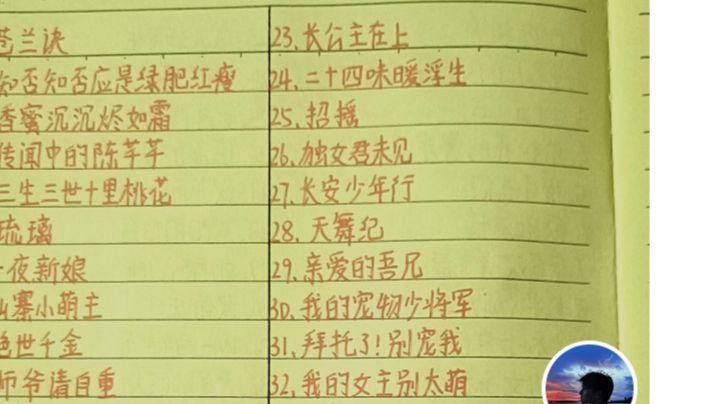 苍兰诀
知否知否应是绿肥红瘦
香蜜沉沉烬如霜
传闻中的陈芊芊
三生三世十里桃花
琉璃
一夜新娘
山寨小萌主
绝世千金
师爷请自重
23.长公主在上
24.二十四味暖浮生
25.招摇
26.独女君未见
27.长安少年行
28.天舞纪
29.亲爱的吾兄
30.我的宠物少将军
31.拜托了!别宠我
32.我的女主别太萌